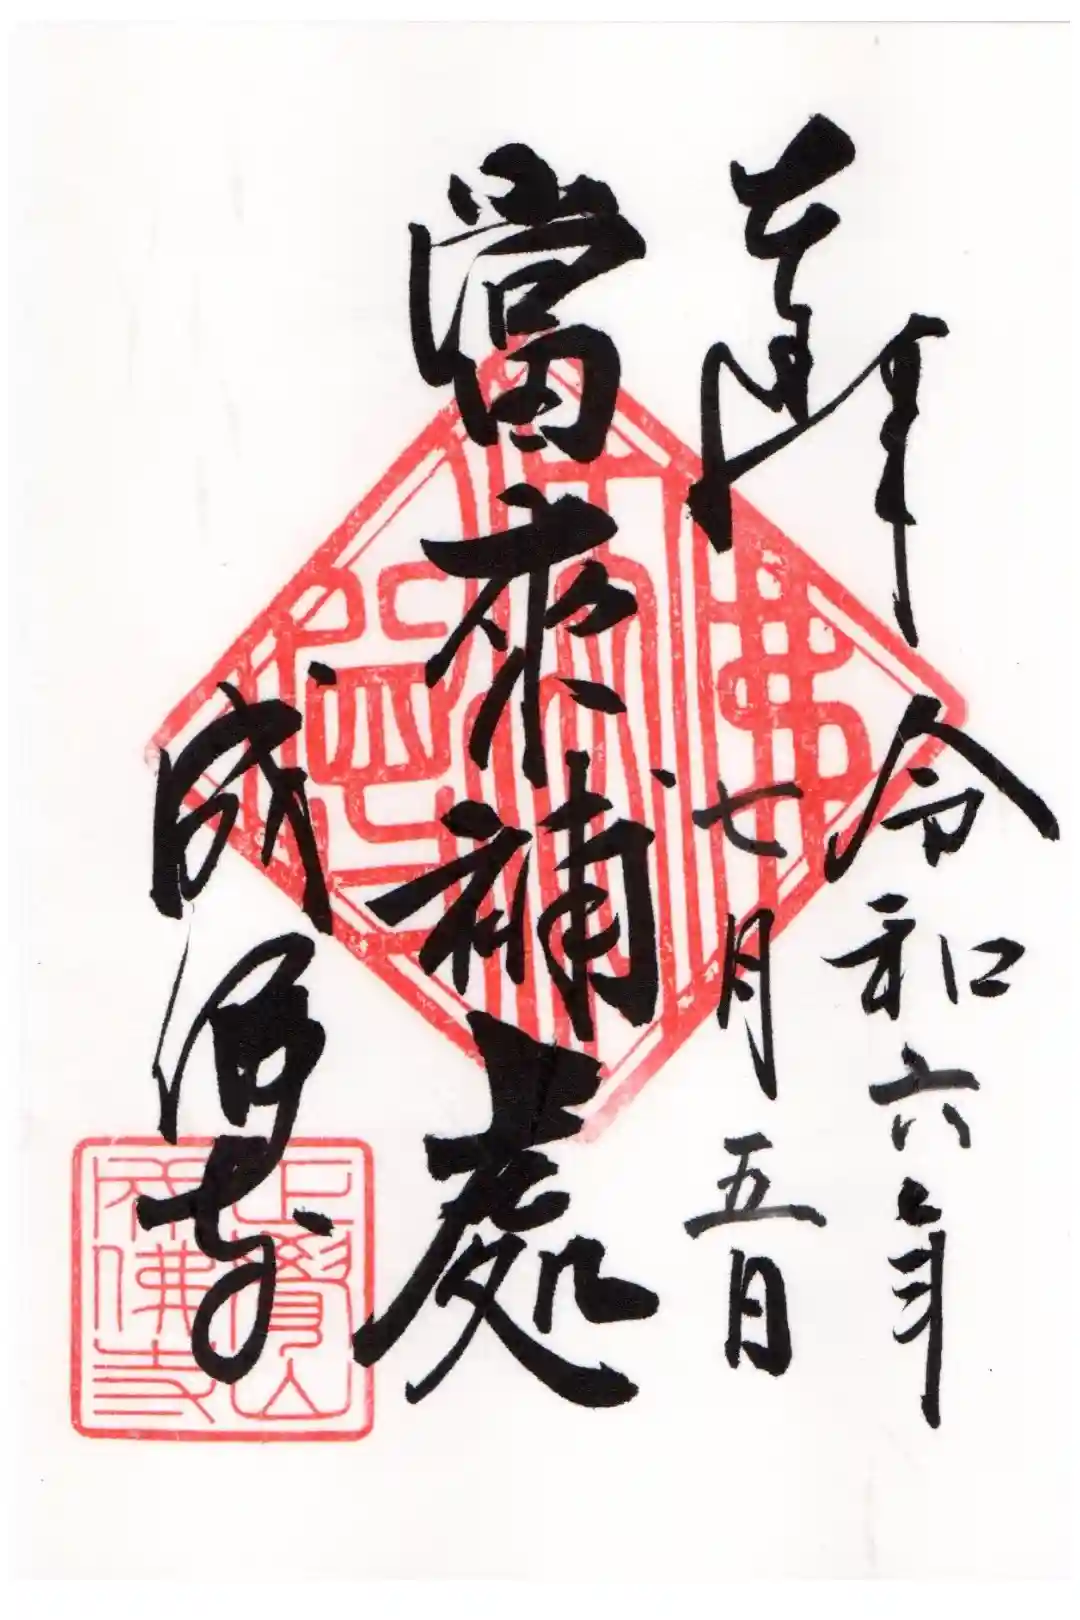 奉拝
令和六年
七月五日
當来補處
成佛寺
正覺山
成佛寺